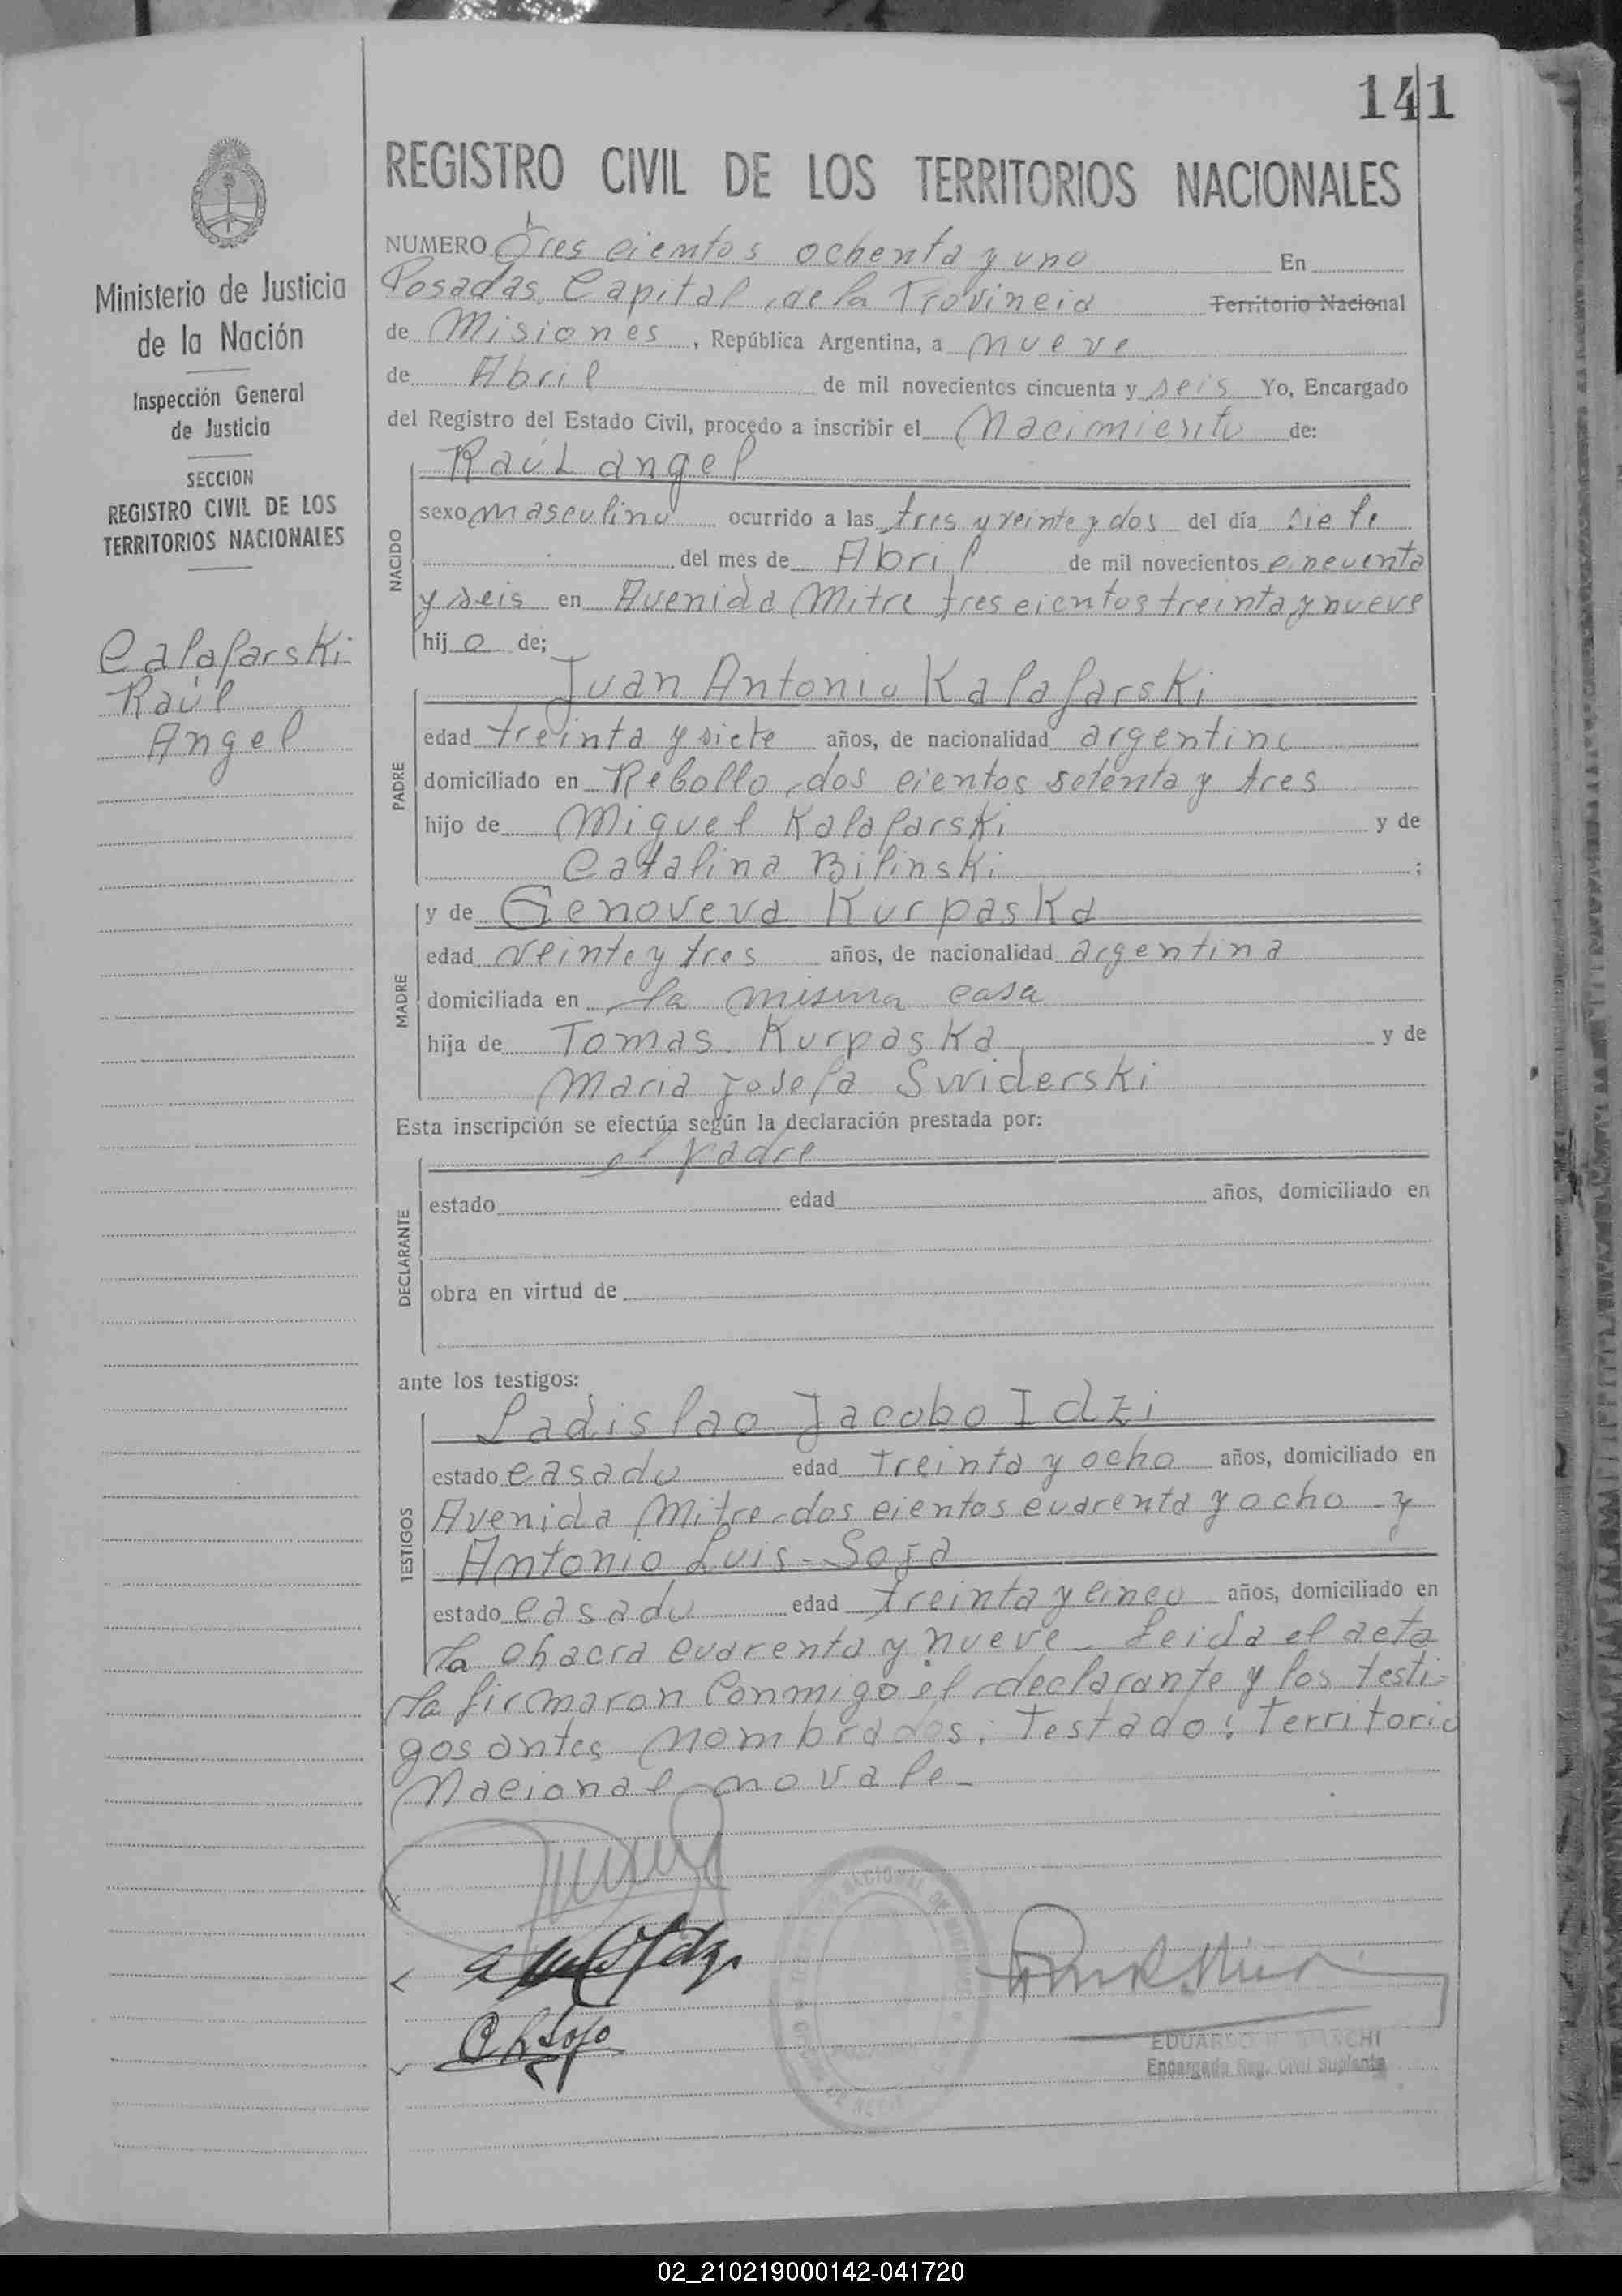 141
REGISTRO CIVIL DE LOS TERRITORIOS NACIONALES
Ministerio de Justicia
de la Nación
Inspección General
de Justicia
SECCION
REGISTRO CIVIL DE LOS
TERRITORIOS NACIONALES
Calafarski
Raúl
Angel
NUMERO Tres cientos ochenta y uno En
Posadas, Capital de la Provincia Territorio Nacional
de Misiones, República Argentina, a nueve
de Abril de mil novecientos cincuenta y seis Yo, Encargado
del Registro del Estado Civil, procedo a inscribir el Nacimiento de:
NACIDO
Raúl angel
sexo masculino ocurrido a las tres y veinte y dos del día siete
del mes de Abril de mil novecientos cincuenta
y seis en Avenida Mitre tres cientos treinta y nueve
hijo de;
PADRE
Juan Antonio Kalafarski
edad treinta y siete años, de nacionalidad argentino
domiciliado en Rebollo, dos cientos setenta y tres
hijo de Miguel Kalafarski y de
Catalina Bilinski ;
MADRE
y de Genoveva Kurpaska
edad veinte y tres años, de nacionalidad argentina
domiciliada en la misma casa
hija de Tomas Kurpaska y de
Maria Josefa Swiderski
Esta inscripción se efectúa según la declaración prestada por:
DECLARANTE
el padre
estado edad años, domiciliado en
obra en virtud de
ante los testigos:
TESTIGOS
Ladislao Jacobo Idzi
estado casado edad treinta y ocho años, domiciliado en
Avenida Mitre dos cientos cuarenta y ocho y
Antonio Luis Soja
estado casado edad treinta y cinco años, domiciliado en
la chacra cuarenta y nueve. Leida el acta
la firmaron Conmigo el declarante y los testi=
gos antes nombrados. Testado: Territorio
Nacional no vale_
Encargado Reg. Civil Suplente
02_210219000142-041720